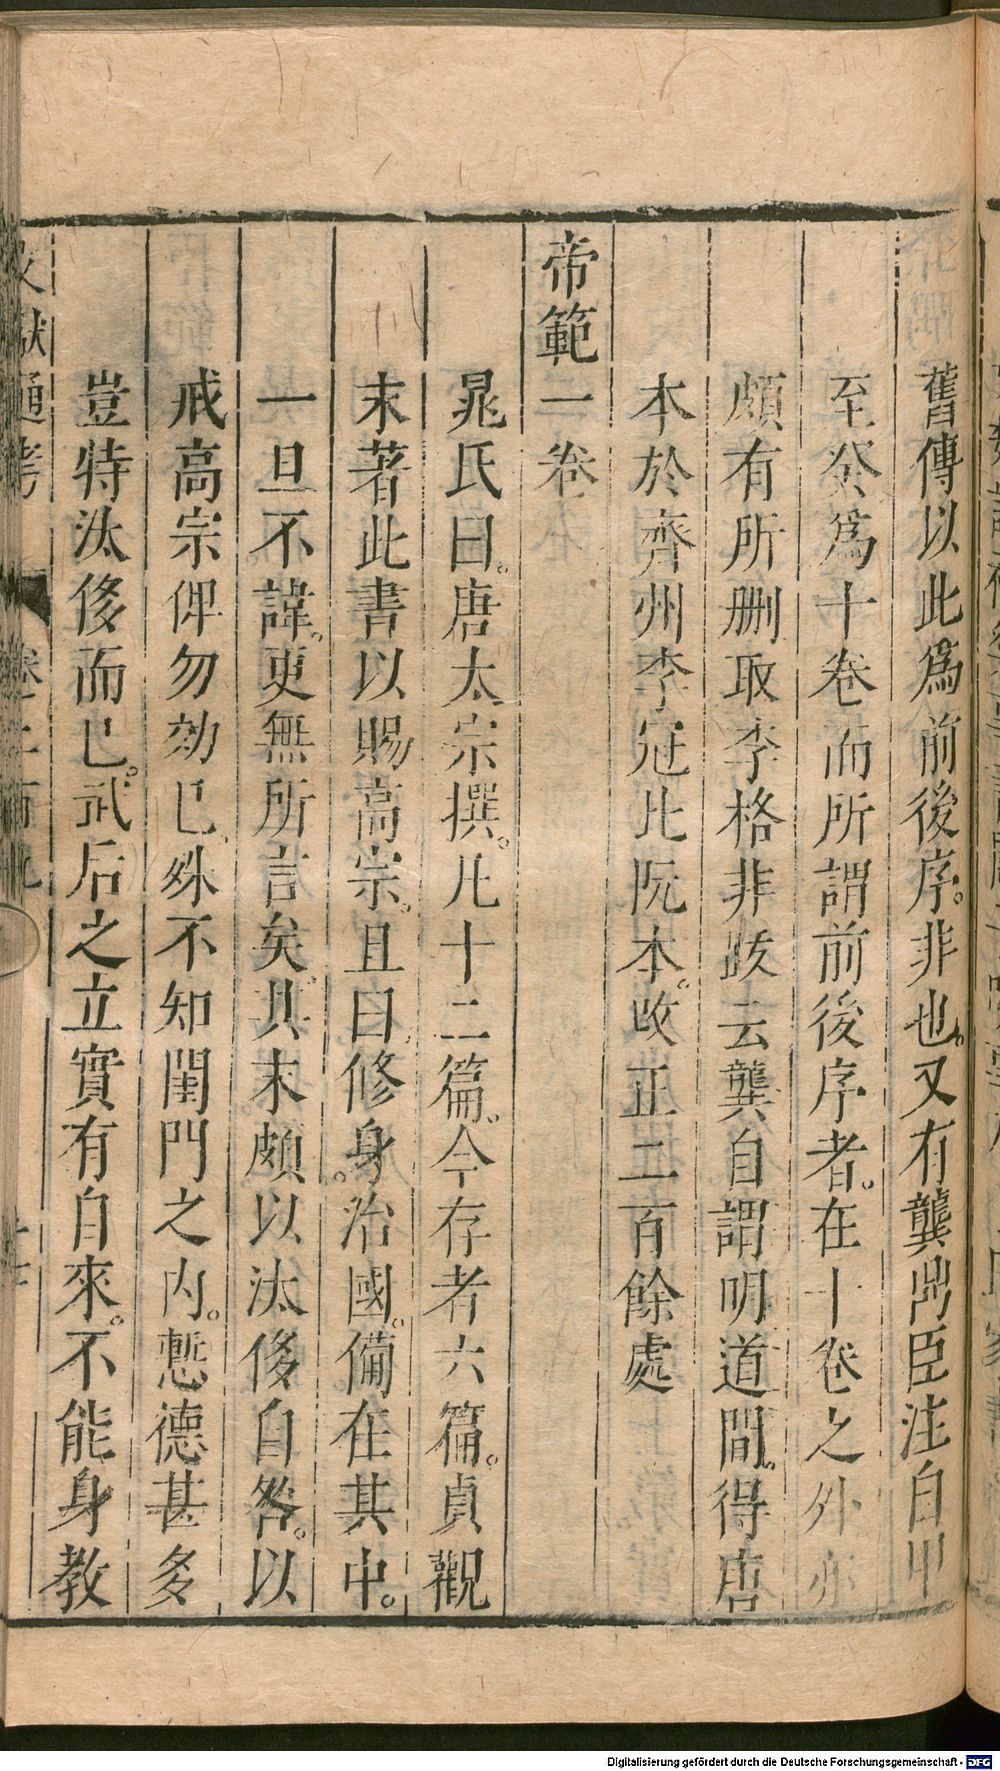 舊傳以此爲前後序。非也。又有龔鼎臣注自甲
至癸爲十卷而所謂前後序者。在十卷之外亦
頗有所刪取李格非跋云龔自謂明道間。得唐
本於齊州李冠比阮本。改正二百餘處
帝範一卷
晁氏曰。唐太宗撰。凡十二篇。今存者六篇。貞觀
末著此書以賜高宗。且曰修身。治國。備在其中。
一旦不諱。更無所言矣。其末頗以汰侈自咎。以
戒高宗俾勿効已。殊不知閨門之內。慙德甚多
豈特汰侈而已。武后之立實有自來。不能身教
文獻通考
卷二百九
Digitalisierung gefördert durch die Deutsche Forschungsgemeinschaft - DFG